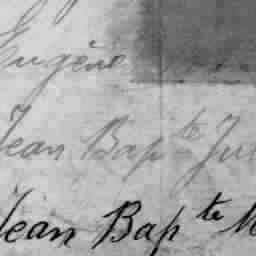 Eugène
Jean Bapte
Jean Bapte